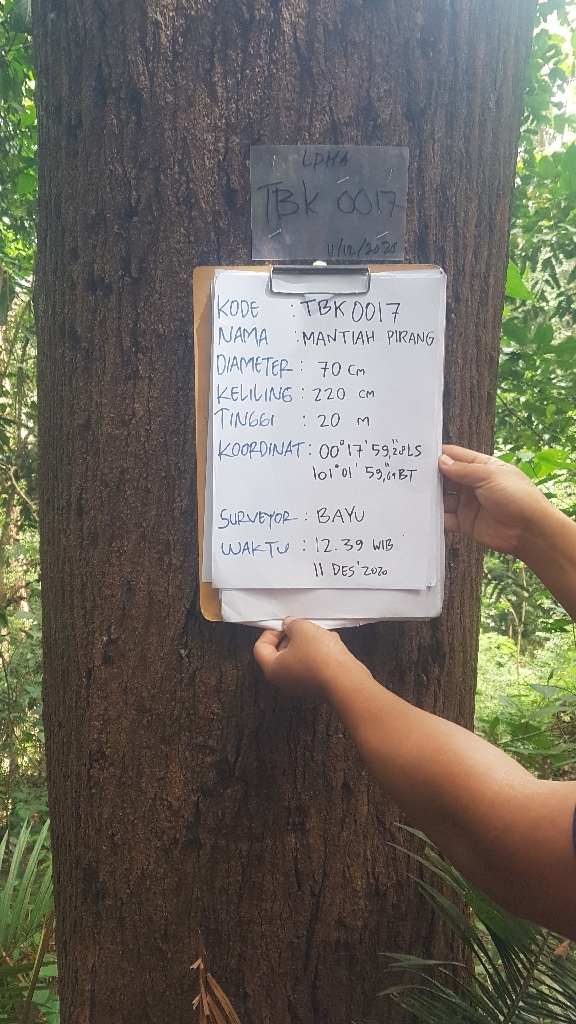 LPHA
TBK 0017
11/12/2020
KODE : TBK 0017
NAMA : MANTIAH PIRANG
DIAMETER : 70 cm
KELILING : 220 cm
TINGGI : 20 M
KOORDINAT : 00° 17' 59,28" LS
101° 01' 59,64" BT
SURVEYOR : BAYU
WAKTU : 12.39 WIB
11 DES' 2020